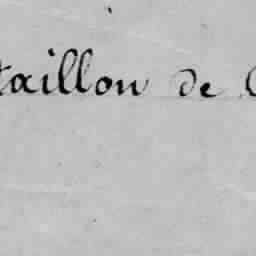 taillon de